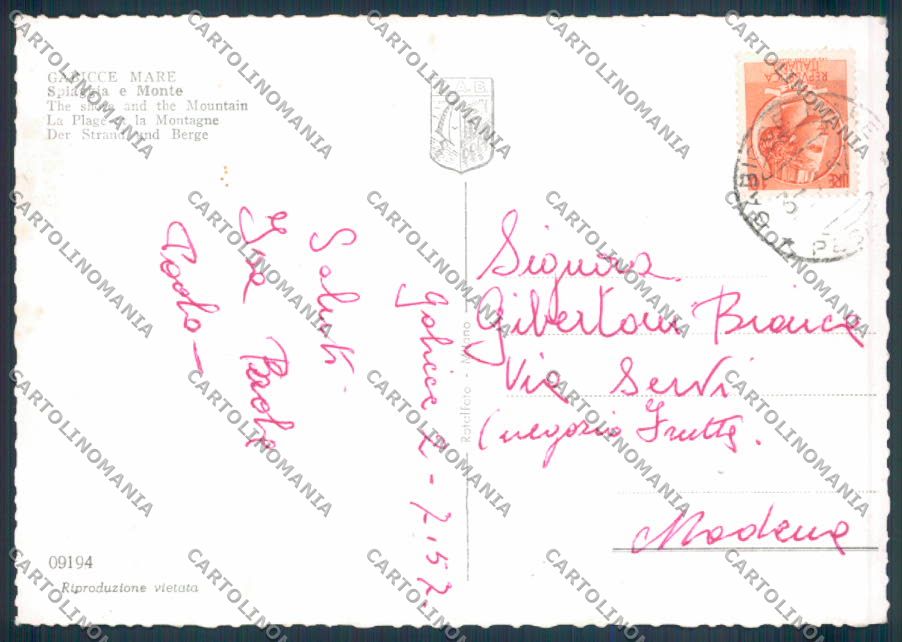 GABICCE MARE
Spiaggia e Monte
The shore and the Mountain
La Plage et la Montagne
Der Strand und Berge
REPVBBLICA
ITALIANA
LIRE
Gabicce 2-7-57.
Saluti
Iva Paola
Paolo
Rotalfoto - Milano
Signora
Gibertoni Bianca
Via Servi
(negozio Frutta.
Modena
09194
Riproduzione vietata
CARTOLINOMANIA